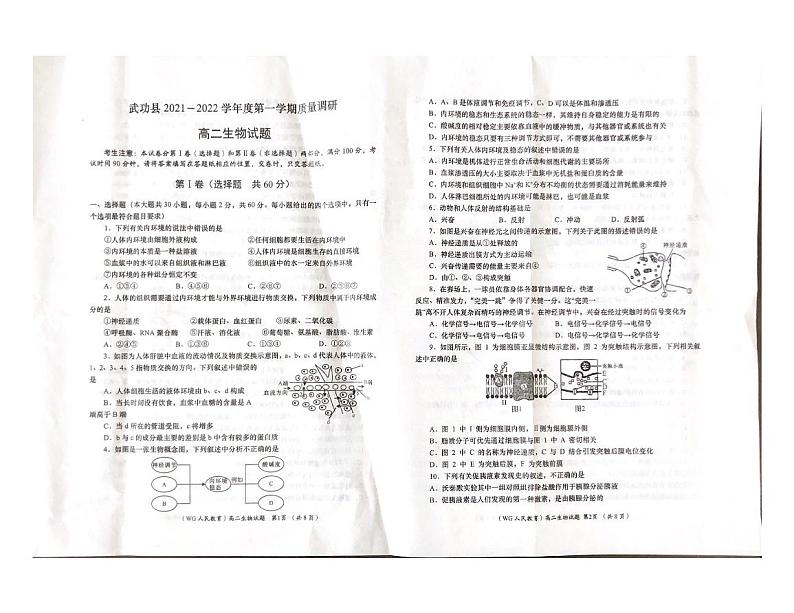 武功县 2021－2022 学年度第一学期质量调研
高二生物试题
考生注意：本试卷分第Ⅰ卷（选择题）和第Ⅱ卷（非选择题）两部分，满分 100 分，考
试时间 90 分钟。请将答案填写在答题纸相应的位置，交卷时，只交答题纸。
第Ⅰ卷（选择题　共 60 分）
一、选择题（本大题共 30 小题，每小题 2 分，共 60 分。每小题给出的四个选项中，只有一
个选项最符合题目要求）
1．下列有关内环境的说法中错误的是
①人体内环境由细胞外液构成　②任何细胞都要生活在内环境中
③内环境的本质是一种盐溶液　④人体内环境是细胞生存的直接环境
⑤血浆中的水可以来自组织液和淋巴液　⑥组织液中的水一定来自外界环境
⑦内环境的各种组分恒定不变
A．①③④　B．②④⑥　C．②⑥⑦　D．②⑤⑥⑦
2．人体的组织需要通过内环境才能与外界环境进行物质交换，下列物质中属于内环境成
分的是
①神经递质　②载体蛋白、血红蛋白　③尿素、二氧化碳
④呼吸酶、RNA 聚合酶　⑤汗液、消化液　⑥葡萄糖、氨基酸、脂肪酸、维生素
A．②④⑤　B．①③⑥　C．①②⑥　D．③④⑤
3．如图为人体肝脏中血液的流动情况及物质交换示意图，a、b、c、d 代表人体中的液体，
1、2、3、4、5 指物质交换的方向。下列叙述中错误的
是
A．人体细胞生活的液体环境由 b、c、d 构成
B．当长时间没有饮食，血浆中血糖的含量是 A
端高于 B 端
C．当 d 所在的管道受阻，c 将增多
D．b 与 c 的成分最主要的差别是 b 中含有较多的蛋白质
A端
血流方向
B端
4．如图是一张生物概念图，下列叙述中分析不正确的是
神经调节
A
B
内环境
稳态
例如
酸碱度
C
D
（WG 人民教育）高二生物试题　第1页　（共 8 页）
A．A、B 是体液调节和免疫调节，C、D 可以是体温和渗透压
B．内环境的稳态和生态系统的稳态一样，其维持自身稳定的能力是有限的
C．酸碱度的相对稳定主要依靠血液中的缓冲物质，与其他器官或系统也有关
D．内环境的稳态只要有三种调节方式即可，不需要其他器官或系统参与
5．下列有关人体内环境及稳态的叙述中，错误的是
A．内环境是机体进行正常生命活动和细胞代谢的主要场所
B．血浆渗透压的大小主要取决于血浆中无机盐和蛋白质的含量
C．内环境与组织细胞中 Na⁺和 K⁺分布不均衡的状态需要通过消耗能量来维持
D．人体淋巴细胞所处的内环境可能是淋巴，也可能是血浆
6．动物和人体反射的结构基础是
A．兴奋　B．反射　C．冲动　D．反射弧
7．如图是兴奋在神经元之间传递的示意图。下列关于此图的描述错误的是
A．神经递质是从①处释放的
B．神经递质出膜方式为主动运输
C．兴奋传递需要的能量主要来自④
D．由①、②、③构成突触
神经递质
①
②
③
④
8．在赛场上，一球员依靠身体各器官协调配合，快速
反应、精准发力，“完美一跳”争得了关键一分。这“完美一
跳”离不开人体复杂而精巧的神经调节，在神经调节中，兴奋在经过突触时的信号变化为
A．化学信号→电信号→化学信号　B．电信号→化学信号→电信号
C．化学信号→化学信号→电信号　D．电信号→电信号→化学信号
9．如图所示，图 1 为细胞膜亚显微结构示意图，图 2 为突触结构示意图，下列相关叙
述中正确的是
Ⅰ
Ⅱ
图1
突触小泡
图2
A．图 1 中Ⅰ侧为细胞膜内侧，Ⅱ侧为细胞膜外侧
B．脂质分子可优先通过细胞膜与图 1 中 A 密切相关
C．图 2 中 C 的名称为神经递质，C 与 D 结合引突触后膜电位变化
D．图 2 中 E 为突触前膜，F 为突触后膜
10．下列有关促胰液素发现史的叙述，不正确的是
A．沃泰默实验其中一组对照组排除盐酸作用于胰腺分泌胰液
B．促胰液素是人们发现的第一种激素，是由胰腺分泌的
（WG 人民教育）高二生物试题　第2页　（共 8 页）